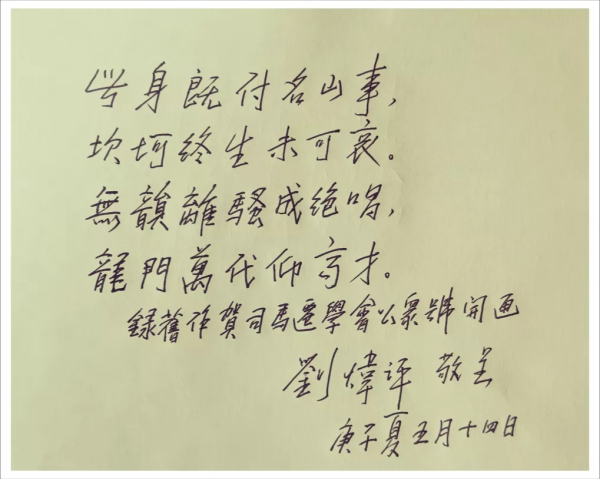 此身既付名山事，
坎坷終生未可哀。
無韻離騷成絶唱，
龍門萬代仰高才。
録舊作賀司馬遷學會公衆號開通
劉煒评 敬呈
庚子夏五月十四日